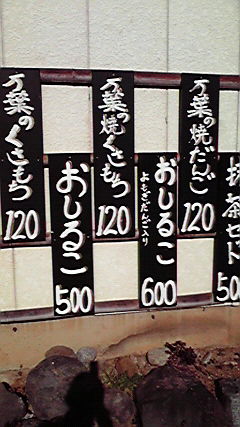 万葉の
くさもち
120
おしるこ
500
万葉の
焼くさもち
120
おしるこ
よもぎだんご入り
600
万葉の
焼だんご
120
抹茶セット